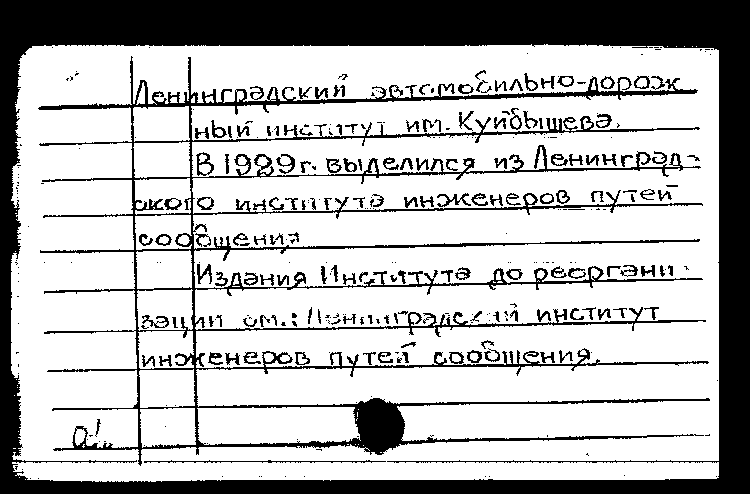 Ленинградский автомобильно-дорож
ный институт им. Куйбышева.
В 1929 г. выделился из Ленинград-
ского института инженеров путей
сообщения
Издания Института до реоргани-
зации см.: Ленинградский институт
инженеров путей сообщения.